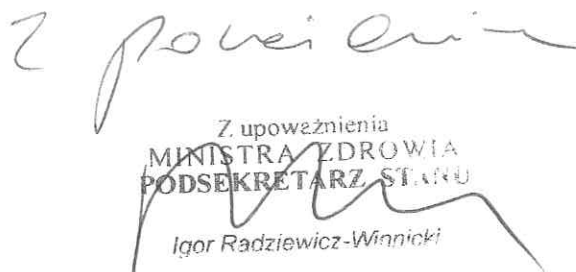 Z poważaniem
Z upoważnienia
MINISTRA ZDROWIA
PODSEKRETARZ STANU
Igor Radziewicz-Winnicki